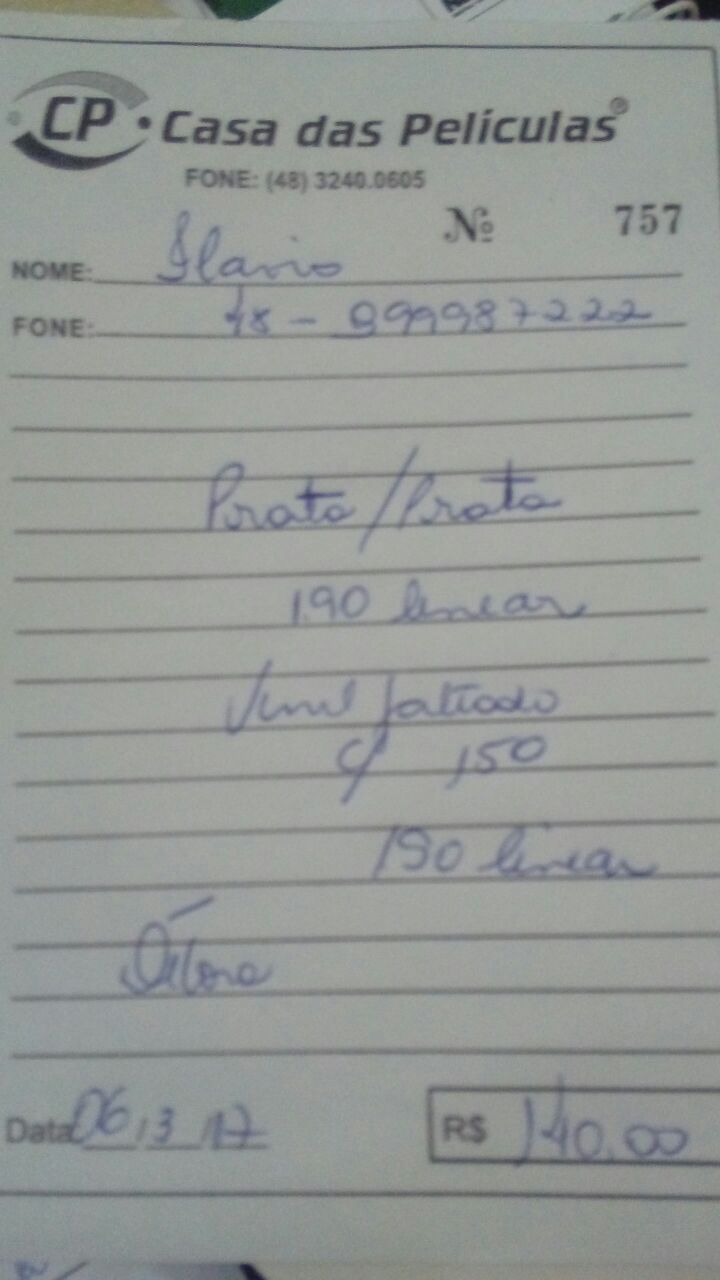 CP Casa das Películas®
FONE: (48) 3240.0605
Nº 757
NOME: Flavio
FONE: 48 - 999987222
Prata/Prata
1.90 linear
Vinil jateado
c/ 1,50
1,90 linear
Débora
Data 06/3/17 R$ 140.00